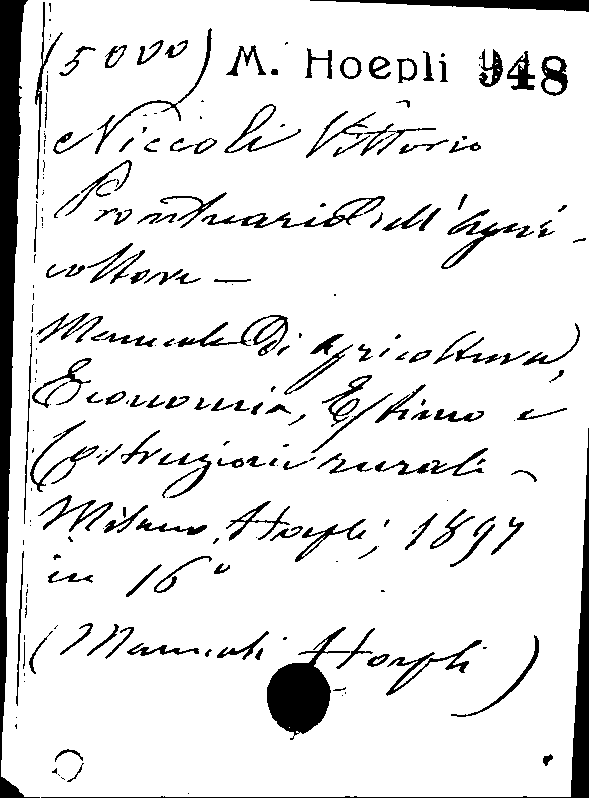 (5000) M. Hoepli 948
Niccoli Vittorio
Prontuario dell'agri-
coltore —
Manuale di agricoltura,
Economia, Estimo e
Costruzioni rurali -
Milano, Hoepli, 1897
in 16°
(Manuali Hoepli)